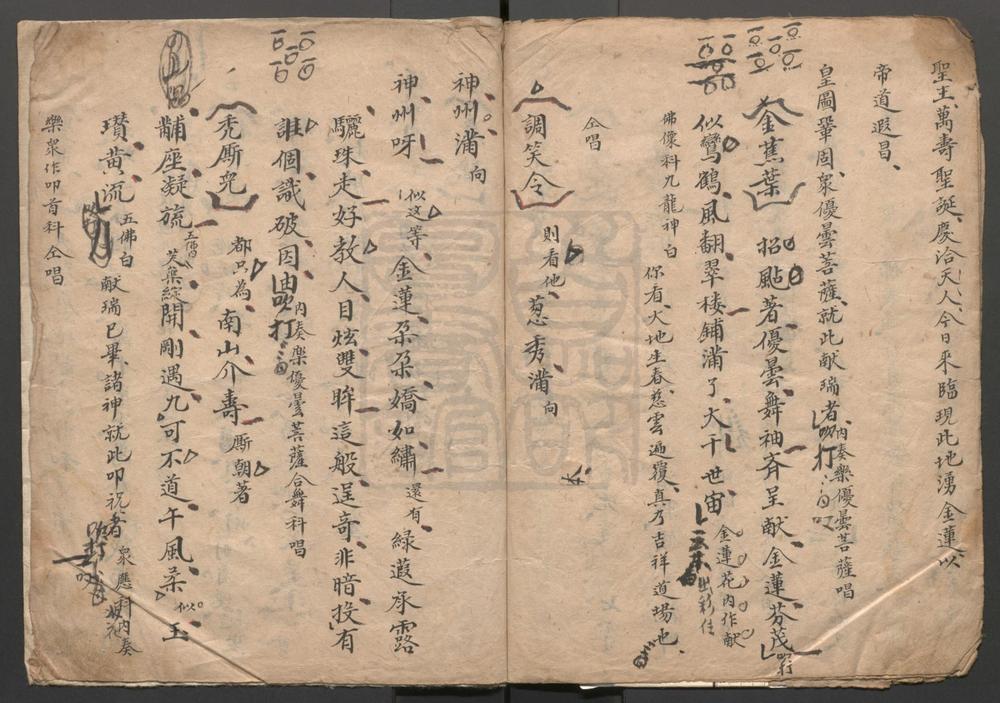 聖主萬壽聖誕、慶洽天人、今日來臨現此地湧金蓮、以
帝道遐昌、
皇圖鞏固、衆優曇菩薩、就此献瑞者、吹打 内奏樂優曇菩薩唱
金蕉葉 招颭著優曇舞袖、齐呈献、金蓮芬茂、吹打
似鸞鶴、風翻翠楼、鋪滿了大千世宙、金蓮花内作献
佛像科九龍神白 你看、大地生春、慈雲遍覆、真乃吉祥道場也、
仝唱
調笑令 則看他、葱秀滿向
神州滿向
神州呀、似这等、金蓮朶朶嬌如繡、還有、綠葭承露
驪珠走、好教人目炫雙眸、這般逞奇非暗投、有
誰個識破因由、吹打 内奏樂優曇菩薩合舞科唱
禿厮兒 都只為、南山介壽、厮朝著
黼座凝旒、五佛白 笑藥綻開、剛遇九、可不道午風柔、似玉
瓚黄流、五佛白 献瑞已畢、諸神就此叩祝者、吹打 衆應科内奏
樂衆作叩首科仝唱